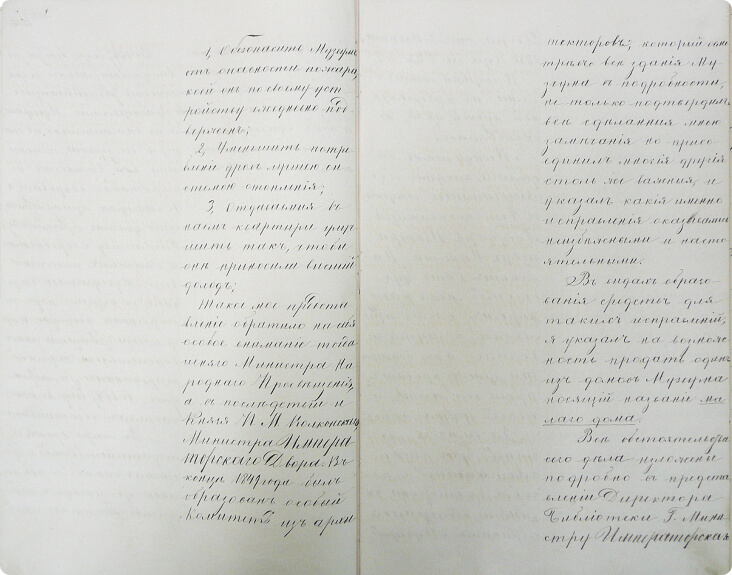 1, Обезопасить Музеумъ
отъ опасности пожара,
кой онъ по своему уст
ройству ежедневно под
верженъ;
2, Уменьшить потре
бленіе дровъ лучшею си
стемою отопленія;
3, Отдаваемыя въ
наемъ квартиры улуч
шить такъ, чтобы
они приносили высшій
доходъ;
Такое мое предста
вленіе обратило на себя
особое вниманіе тогда
шняго Министра На
роднаго Просвѣщенія,
а въ послѣдствіи и
Князя П. М. Волконскаго,
Министра Импера
торскаго Двора. Въ
концѣ 1849 года былъ
образованъ особый
Комитетъ изъ архи
текторовъ; который осмо
трѣлъ всѣ зданія Му
зеума въ подробности,
не только подтвердилъ
всѣ сдѣланныя мною
замѣчанія но присо
единилъ многія другія
столь же важныя, и
указалъ какія именно
исправленія оказываются
неизбѣжными и насто
ятельными.
Въ видахъ образо
ванія средствъ для
такихъ исправленій,
я указалъ на возмож
ность продать одинъ
изъ домовъ Музеума
носящій названіе ма
лаго дома.
Всѣ обстоятельства
сего дѣла изложены
подробно въ предста
вленіи Директора
Библіотеки Г. Мини
стру Императорскаго